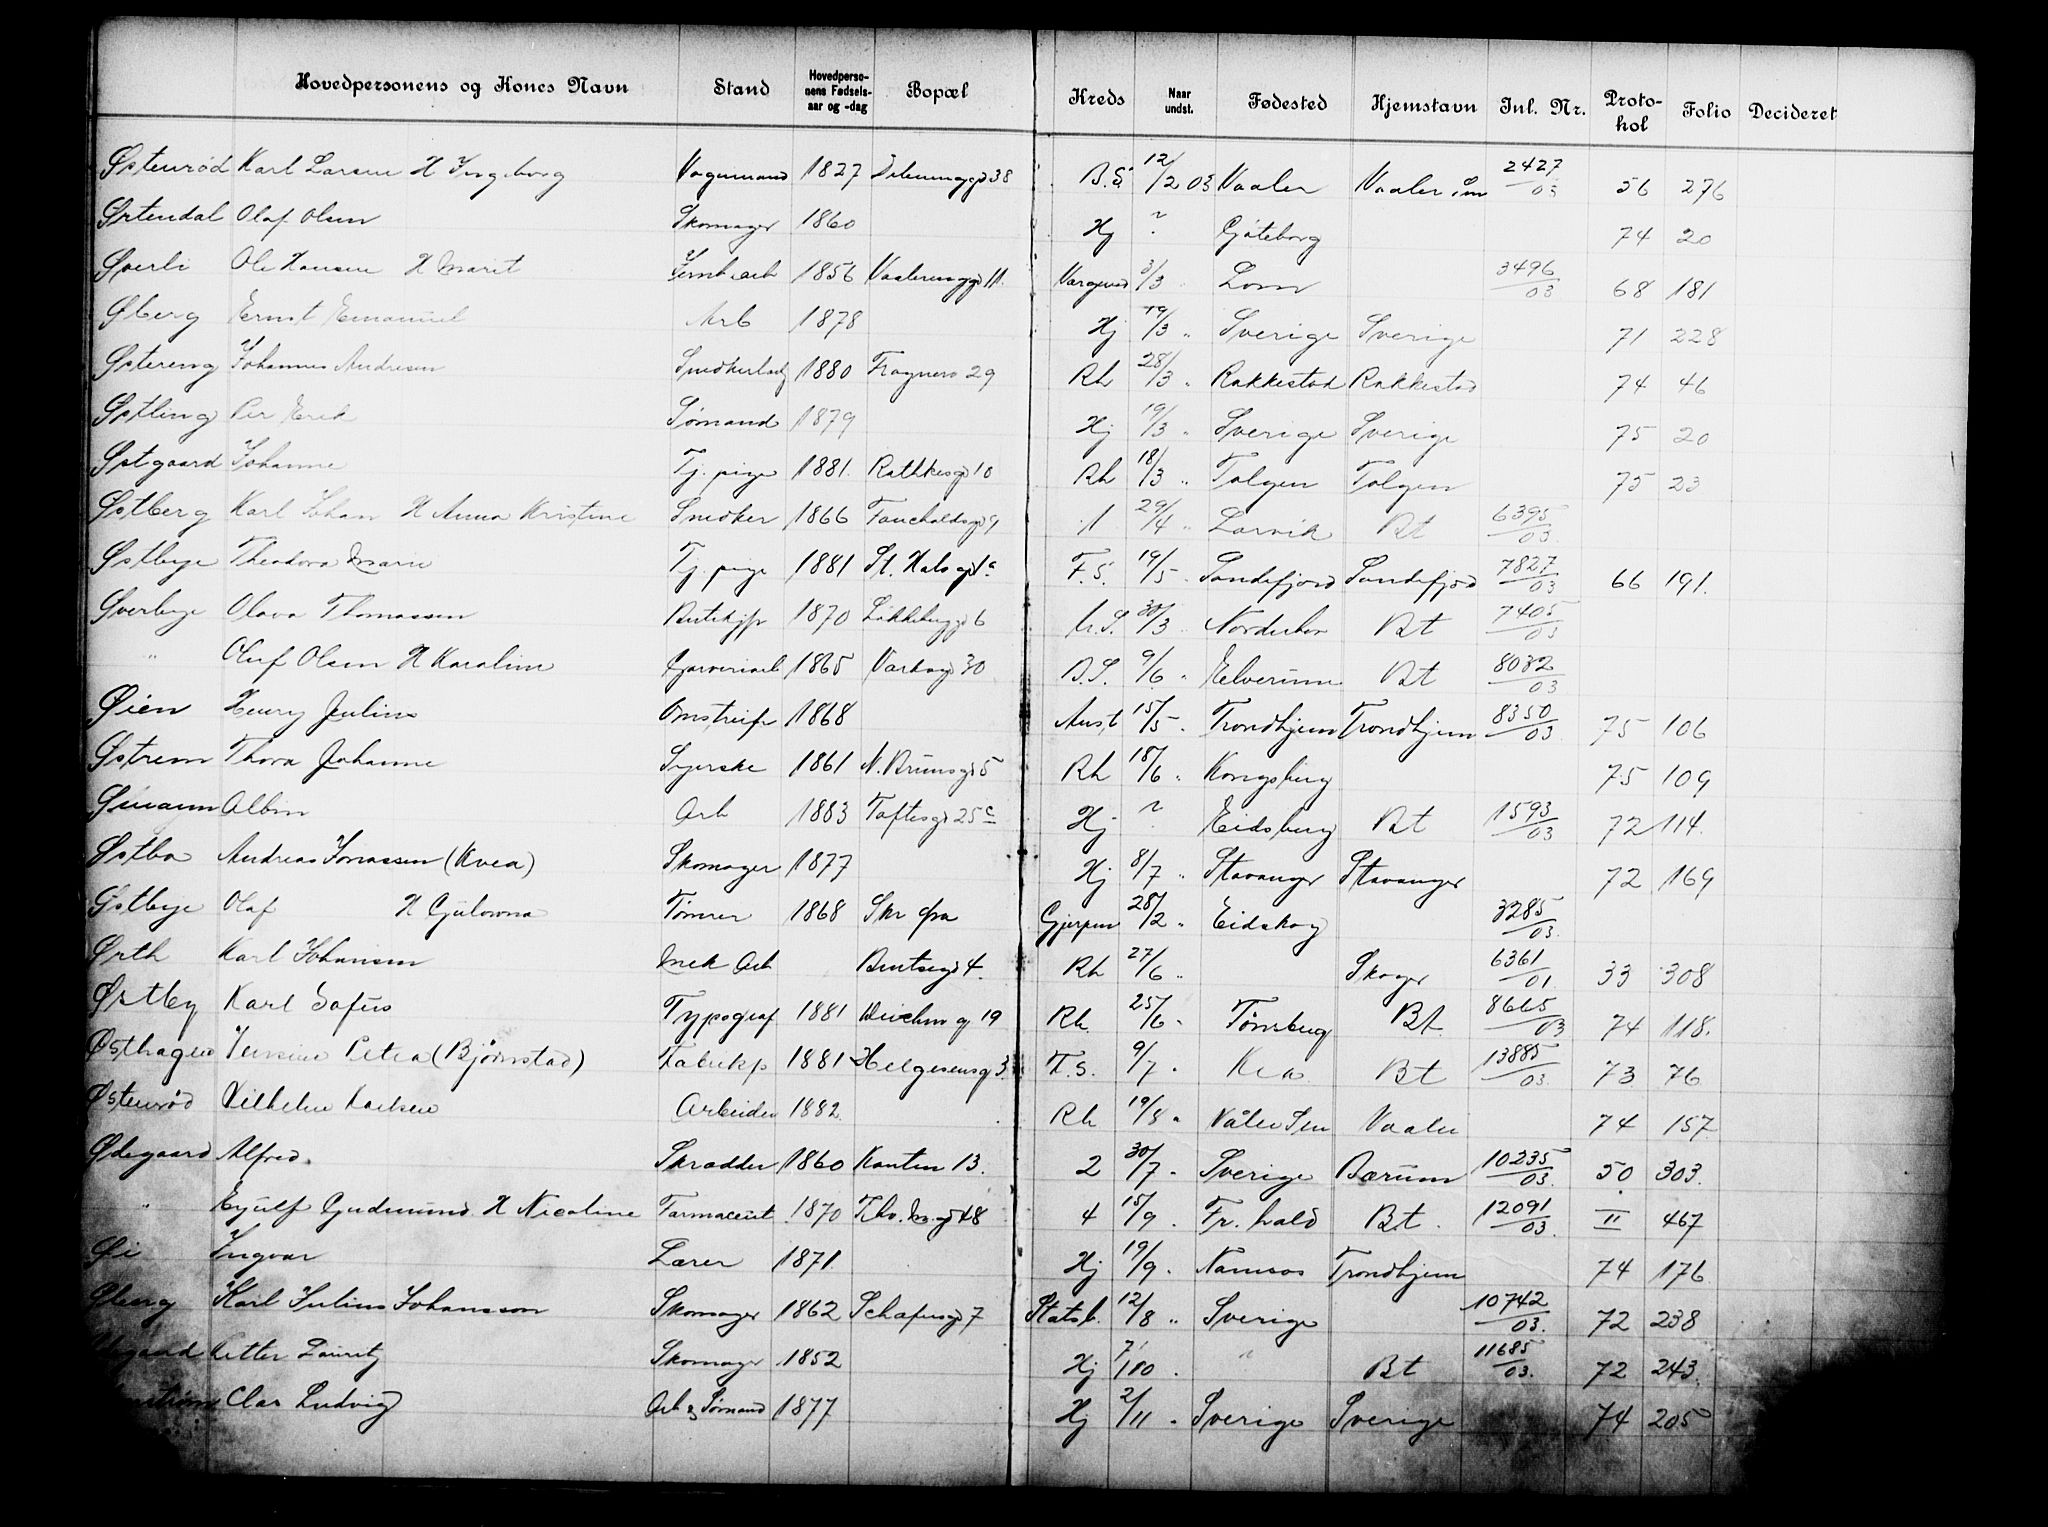 Hovedpersonens og Kones Navn Stand Hovedperso-nens Fødsels-aar og -dag Bopæl Kreds Naar undst. Fødested Hjemstavn Inl. Nr. Proto-kol Folio Decideret
Østenrød Karl Larsen H Ingeborg Vognmand 1827 38 B.S. 12/2 03 Vaaler Vaaler Sm 2427/03 56 276
Ørtendal Olaf Olsen Skomager 1860 Hj ? Gjøteborg 74 20
Øverli Ole Hansen H Marit Jernb.arb 1856 Vaalerenggd 11. 3/3 Lom 3496/03 68 181
Øberg Ernst Emanuel Arb 1878 Hj 19/3 " Sverige Sverige 71 228
Østereng Johannes Andresen 1880 Frognerv 29 Rh 28/3 " Rakkestad Rakkestad 74 46
Østling Per Erik Sømand 1879 Hj 19/3 " Sverige Sverige 75 20
Østgaard Johanne Tj. pige 1881. Rathkesgd 10 Rh 18/3 " Tolgen Tolgen 75 23
Østberg Karl Johan H Anna Kristine Snedker 1866 Fauchaldsgd 9 1 29/4 " Larvik Bt 6395/03.
Østbye Theodora Marie Tj. pige 1881 St. Halvgd 1a F.S. 19/5 " Sandefjord Sandefjord 7827/03 66 191.
Øverbye Olava Thomassen 1870 Løkkeberggd 6 30/3 " Norderhov Bt 7405/03
" Oluf Olsen H Karoline Garveriarb 1865 30 B.S. 9/6 " Elverum Bt 8082/03
Øien Henry Julius Omstreifer 1868 Aust 15/5 " Trondhjem Trondhjem 8350/03 75 106
Østrem Thora Johanne Syerske 1861 N. Brunsgd 5 Rh 18/6 " Kongsberg 75 109
Albin Arb 1883 Toftesgd 25c Hj ? Eidsberg Bt 1593/03 72 114.
Østbø Andreas Jonassen (Kvea) Skomager 1877 Hj 8/7 " Stavanger Stavanger 72 169
Østbye Olaf H Gulowna Tømrer 1868 Skr fra Gjerpen 28/2 " Eidskog 3285/03.
Ørth Karl Johansen Mek Arb Bentsegd 4. Rh 27/6 " Skoger 6361/01. 33 308
Østby Karl Sofus Typograf 1881 19 Rh. 25/6 " Tønsberg Bt. 8665/03 74 118.
Østhagen Jensine Petra (Bjørnstad) Fabrikp 1881 Helgesensg 3. F.S. 9/7 " Kra Bt 13885/03. 73 76
Østenrød Vilhelm Karlsen Arbeider 1882. Rh 19/8 " Våler Sm Vaaler 74 157
Ødegaard Alfred. Skrædder 1860 Kanten 13. 2 30/7 " Sverige Bærum 10235/03. 50 303.
" Eyulf Gudmund. H Nicoline Farmaceut 1870 Thv. M.gd 48 4 15/9. Fr. hald Bt. 12091/03. II 467
Øi Ingvar Lærer 1871. Hj 19/9 " Namsos Trondhjem 74 176
Øberg Karl Julius Johansson Skomager 1862 Schafersgd 7 Statsb. 12/8 " Sverige 10742/03. 72 238
Petter Lauritz Skomager 1852 Hj 7/10 " " Bt 11685/03. 72 243.
Ludvig Arb & Sømand 1877 Hj 2/11 " Sverige Sverige 74 205